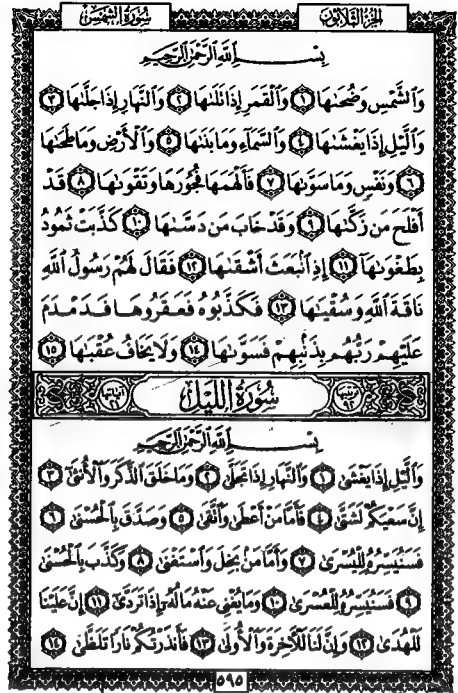 سُورَةُ الشَّمْسِ
الجُزْءُ الثَّلَاثُونَ
بِسْمِ اللَّهِ الرَّحْمَٰنِ الرَّحِيمِ
وَالشَّمْسِ وَضُحَىٰهَا ١ وَالْقَمَرِ إِذَا تَلَىٰهَا ٢ وَالنَّهَارِ إِذَا جَلَّىٰهَا ٣
وَالَّيْلِ إِذَا يَغْشَىٰهَا ٤ وَالسَّمَاءِ وَمَا بَنَىٰهَا ٥ وَالْأَرْضِ وَمَا طَحَىٰهَا
٦ وَنَفْسٍ وَمَا سَوَّىٰهَا ٧ فَأَلْهَمَهَا فُجُورَهَا وَتَقْوَىٰهَا ٨ قَدْ
أَفْلَحَ مَن زَكَّىٰهَا ٩ وَقَدْ خَابَ مَن دَسَّىٰهَا ١٠ كَذَّبَتْ ثَمُودُ
بِطَغْوَىٰهَا ١١ إِذِ انبَعَثَ أَشْقَىٰهَا ١٢ فَقَالَ لَهُمْ رَسُولُ اللَّهِ
نَاقَةَ اللَّهِ وَسُقْيَىٰهَا ١٣ فَكَذَّبُوهُ فَعَقَرُوهَا فَدَمْدَمَ
عَلَيْهِمْ رَبُّهُم بِذَنبِهِمْ فَسَوَّىٰهَا ١٤ وَلَا يَخَافُ عُقْبَىٰهَا ١٥
سُورَةُ اللَّيْلِ
بِسْمِ اللَّهِ الرَّحْمَٰنِ الرَّحِيمِ
وَالَّيْلِ إِذَا يَغْشَىٰ ١ وَالنَّهَارِ إِذَا تَجَلَّىٰ ٢ وَمَا خَلَقَ الذَّكَرَ وَالْأُنثَىٰ ٣
إِنَّ سَعْيَكُمْ لَشَتَّىٰ ٤ فَأَمَّا مَنْ أَعْطَىٰ وَاتَّقَىٰ ٥ وَصَدَّقَ بِالْحُسْنَىٰ ٦
فَسَنُيَسِّرُهُ لِلْيُسْرَىٰ ٧ وَأَمَّا مَن بَخِلَ وَاسْتَغْنَىٰ ٨ وَكَذَّبَ بِالْحُسْنَىٰ
٩ فَسَنُيَسِّرُهُ لِلْعُسْرَىٰ ١٠ وَمَا يُغْنِي عَنْهُ مَالُهُ إِذَا تَرَدَّىٰ ١١ إِنَّ عَلَيْنَا
لَلْهُدَىٰ ١٢ وَإِنَّ لَنَا لَلْآخِرَةَ وَالْأُولَىٰ ١٣ فَأَنذَرْتُكُمْ نَارًا تَلَظَّىٰ ١٤
٥٩٥